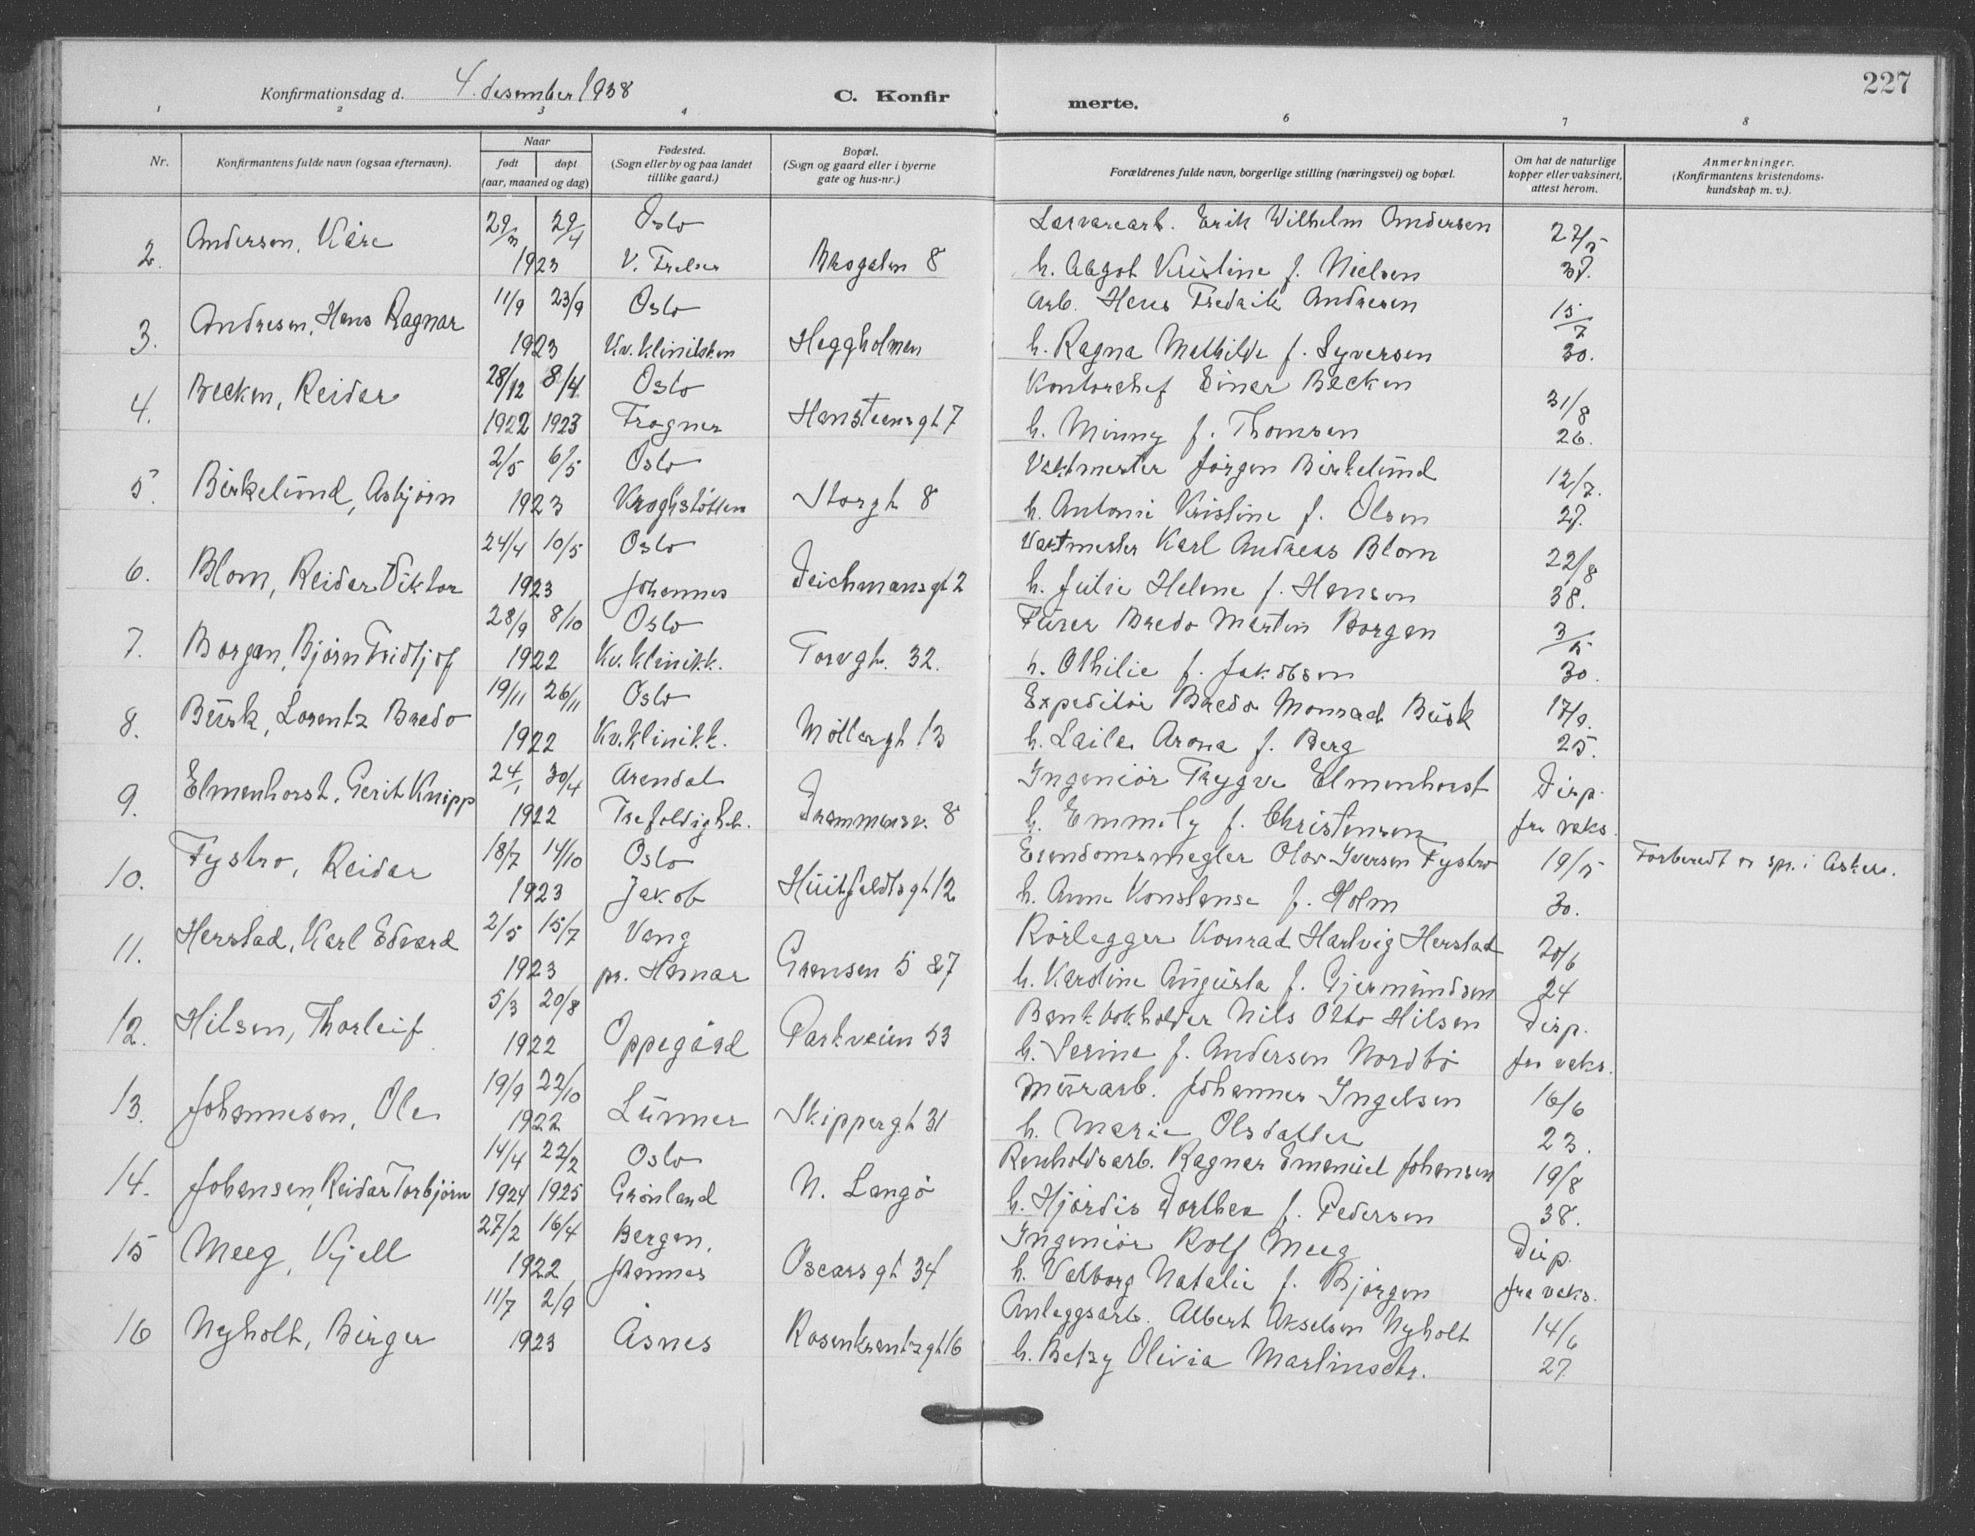 227
Konfirmationsdag d. 4. desember 1938
C. Konfirmerte.
1 2 3 4 6 7 8
Nr.
Konfirmantens fulde navn (ogsaa efternavn).
Naar
født døpt
(aar, maaned og dag)
Fødested.
(Sogn eller by og paa landet
tillike gaard.)
Bopæl.
(Sogn og gaard eller i byerne
gate og hus-nr.)
Forældrenes fulde navn, borgerlige stilling (næringsvei) og bopæl.
Om hat de naturlige
kopper eller vaksinert,
attest herom.
Anmerkninger.
(Konfirmantens kristendoms-
kundskap m. v.).
2. Andersen, Kåre 29/3 29/4 Oslo Erik Wilhelm Andersen 27/5
1923 V. Frelser 8 h. Aagot Kristine f. Nielsen 37.
3. Andresen, Hans Ragnar 11/9 23/9 Oslo Arb. Hans Fredrik Andresen 15/7
1923 Kv. klinikken Heggholmen h. Ragna Mathilde f. Syversen 30.
4. Becken, Reidar 28/12 8/4 Oslo Kontorchef Einar Becken 31/8
1922 1923 Frogner Hansteensgt 7 h. Minny f. Thomsen 26.
5. Birkelund, Asbjørn 2/5 6/5 Oslo Vaktmester Jørgen Birkelund 12/7.
1923 Kroghstøtten Storgt 8 h. Antonie Kristine f. Olsen 27.
6. Blom, Reidar Viktor 24/4 10/5 Oslo Vaktmester Karl Andreas Blom 22/8
1923 Johannes Deichmansgt 2 h. Julie Helene f. Hansen 38.
7. Borgen, Bjørn Fridtjof 28/9 8/10 Oslo Furer Bredo Martin Borgen 3/5
1922 Kv. klinikk. Torvgt. 32. h. Othilie f. Jakobsen 30.
8. Busk, Lorentz Bredo 19/11 26/11 Oslo Expeditør Bredo Monrad Busk 17/9.
1922 Kv. klinikk. Møllergt 13 h. Laila Arona f. Berg 25.
9. Elmenhorst, Gerit Knipp 24/1 30/4 Arendal Ingeniør Trygve Elmenhorst Disp.
1922 Trefoldighet. Drammensv. 8 h. Emmely f. Christensen fra vaks.
10. Fystro, Reidar 18/7 14/10 Oslo Eiendomsmegler Olav Iversen Fystro 19/5 Forberedt o spr. i Asker.
1923 Jakob Huitfeldtsgt 12 h. Anne Konstanse f. Holm 30.
11. Herstad, Karl Edvard 2/5 15/7 Vang Rørlegger Konrad Hartvig Herstad 20/6
1923 pr. Hamar Grensen 5 & 7 h. Karoline Augusta f. Gjermundsen 24
12. Hilsen, Thorleif 5/3 20/8 Bankbokholder Nils Otto Hilsen Disp.
1922 Oppegård Parkveien 53 h. Serine f. Andersen Nordbø fra vaks.
13. Johannesen, Ole 19/9 22/10 Murarb. Johannes Ingelsen 16/6
1922 Lunner Skippergt 31 h. Marie Olsdatter 23.
14. Johansen, Reidar Torbjørn 14/4 22/2 Oslo Renholdsarb. Ragnar Emanuel Johansen 19/8
1924 1925 Grønland N. Langø h. Hjørdis Dorthea f. Pedersen 38.
15 Meeg, Kjell 27/2 16/4 Bergen, Ingeniør Rolf Meeg Disp.
1922 Johannes Oscarsgt 34 h. Valborg Natalie f. Bjørgen fra vaks.
16 Nyholt, Birger 11/7 2/9 Anleggsarb. Albert Akselsen Nyholt 14/6
1923 Åsnes Rosenkrantzgt 16 h. Betzy Olivia Martinsdtr. 27